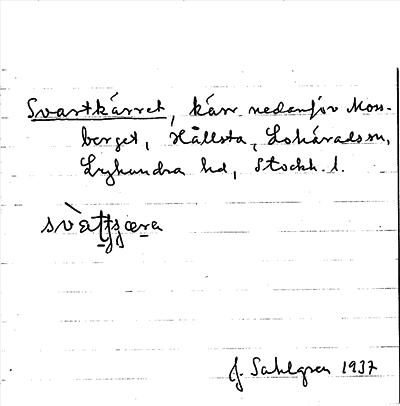 Svartkärret, kärr nedanför Moss-
berget, Hållsta, Lohärads sn,
Lyhundra hd, Stockh. l.
svàt̠ʃɟæra
J. Sahlgren 1937